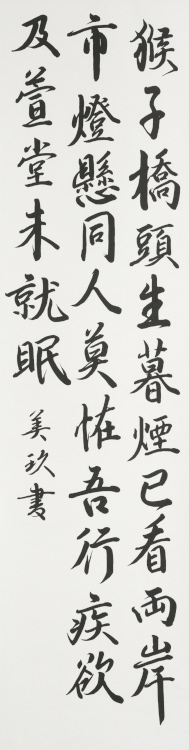 猴子橋頭生暮煙已看兩岸
市燈懸同人莫怪吾行疾欲
及萱堂未就眠
美玖書